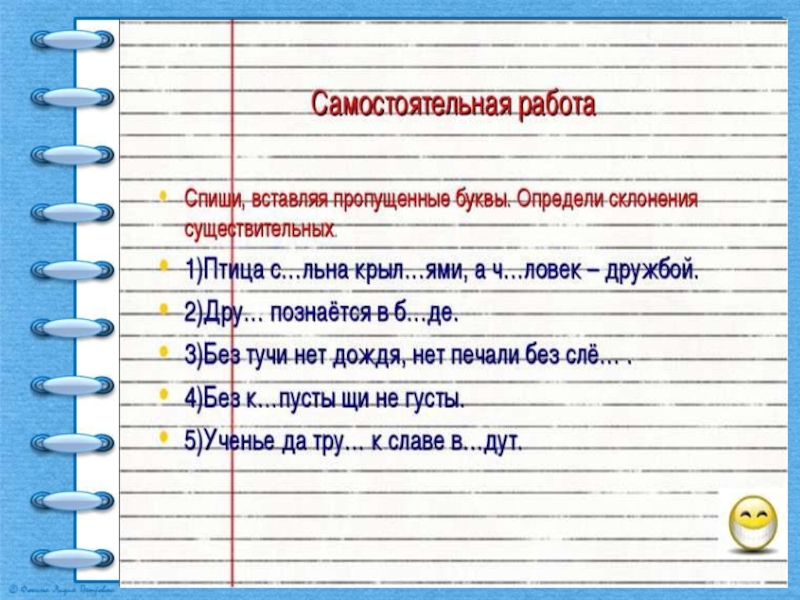 Самостоятельная работа
Спиши, вставляя пропущенные буквы. Определи склонения
существительных.
1)Птица с…льна крыл…ями, а ч…ловек – дружбой.
2)Дру… познаётся в б…де.
3)Без тучи нет дождя, нет печали без слё… .
4)Без к…пусты щи не густы.
5)Ученье да тру… к славе в…дут.